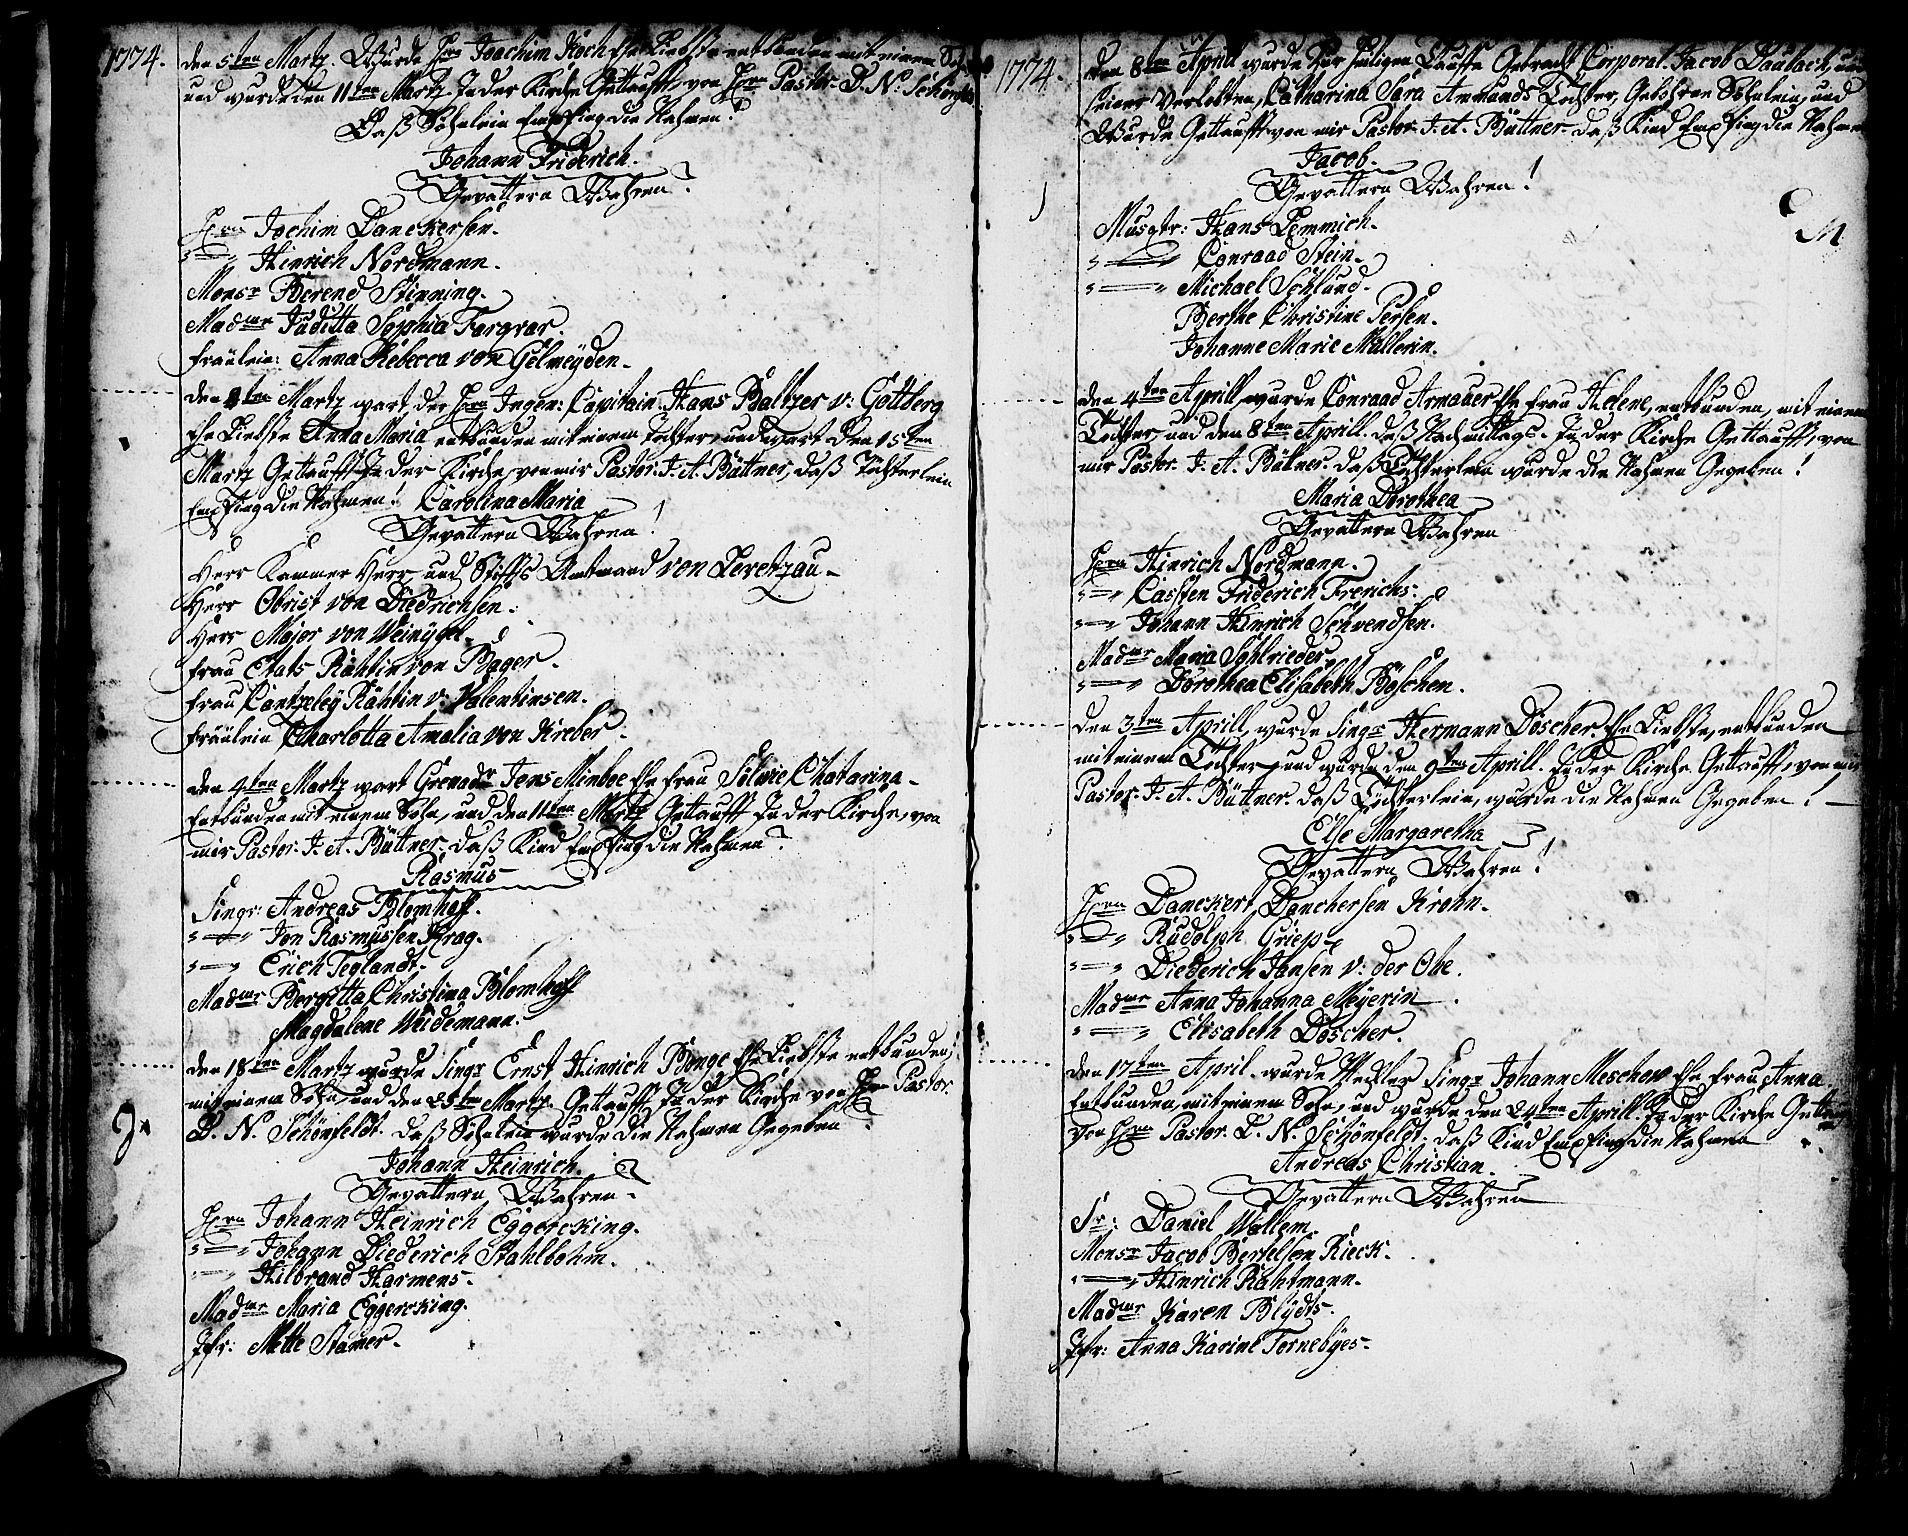 1774.
den 5ten Martz. Wurde Hrn Joachim Koch Ehe Liebste entbunden mit einem
und wurde den 11ten Martz. In der Kirche Gettaufft, von Hrn Pastor. D. N. Schönfeldt
Daß Söhnlein Empfing die Nahmen?
Johann Friderich.
Gevattern Wahren?
Hrn Jochim Danckersen.
" — " Hinrich Nordmann.
Monsr Berend Stinning.
Madme Juditta Sophia Fargrar.
Fräulein: Anna Rebecca von Gelmeyden.
den 8ten Martz wart, der Hrn Ingen: Capitain. Hans Baltzer v: Gottberg
Ehe Liebste Anna Maria entbunden mit einem Tochter, und wart den 15ten
Martz Gettaufft In der Kirche, von mir Pastor. J. A. Büttner, daß Töchterlein
Empfing die Nahmen! Carolina Maria
Gevattern Wahren!
Herr Kammer Herr und Stiffts Amtmand von Levetzau.
Herr Obrist von Diedrichsen.
Herr Major von Weinygel.
Frau Etats Räthin von Bager.
Frau Cantzeley Räthin v: Valentinsen.
Fräulein Charlotta Amalia von Kreber.
den 4ten Martz wart Grenadr Jens Mindoe Ehe Frau Solwie Chatarina
Entbunden mit einem Sohn, und den 11ten Martz Gettaufft In der Kirche, von
mir Pastor. J. A. Büttner. daß Kind Empfing die Nahmen?
Rasmus
Singr: Andreas Blomhoff.
" — " Jon Rasmussen Krag.
" — " Erich Teglandt.
Madme Bergitta Christina Blomhoff
Magdalene Weidemann.
den 18ten Martz wurde Singr Ernst Hinrich Bonge Ehe Liebste entbunden,
mit einem Sohn, und den 25ten Martz. Gettaufft In der Kirche von Hrn Pastor
D. N. Schönfeldt. daß Söhnlein wurde die Nahmen Gegeben
Johann Heinrich.
Gevattern Wahren.
Hrn Johann Heinrich Eggercking.
" — " Johann Diederich Stahlbohm.
" — " Hilbrand Harmens.
Madme Maria Eggercking.
Jfr: Mette Stamer.
1774.
den 8ten April wurde Zur heiligen Tauffe Gebracht Corporal. Jacob Daulach, und
seiner Verlobten, Catharina Sara Ammunds Tochter, Gebohrne Söhnlein, und
Wurde Gettaufft von mir Pastor. J. A. Büttner. daß Kind Empfing die Nahmen
Jacob.
Gevattern Wahren!
Musqtr: Hans Lemmich.
" — " Conraad Stein.
" — " Michael Schlund.
Berthe Christine Persen.
Johanne Marie Müllerin.
den 4ten Aprill wurde Conraad Armauer Ehe Frau Helene, entbunden, mit einem
Tochter, und den 8ten Aprill. daß Nachmittags. In der Kirche Gettaufft, von
mir Pastor. J. A. Bütner. daß Töchterlein wurde die Nahmen Gegeben!
Maria Dorothea
Gevattern Wahren
Hrn Hinrich Nordmann.
" — " Cassten Friderich Frerichs.
" — " Johann Hinrich Schwendsen.
Madme Maria Schlrieder
" — " Dorothea Elisabeth Boschen.
den 3ten Aprill, wurde Singr Hermann Döscher. Ehe Liebste, entbunden
mit einem Tochter, und wurde den 9ten Aprill. In der Kirche. Gettaufft, von mir
Pastor. J. A. Büttner. daß Töchterlein, wurde die Nahmen Gegeben!
Else Margaretha
Gevattern Wahren!
Hrn Danckert Danchersen Krohn.
" — " Rudolph Griep.
" — " Diederich Jansen v: der Ohe.
Madme Anna Johanna Meyerin.
" — " Elisabeth Döscher.
den 17ten April. wurde Medler Singr Johann Meschow Ehe Frau Anna
Entbunden, mit einem Sohn, und wurde den 24ten Aprill. In der Kirche Gettaufft
von Hrn Pastor. D. N. Schönfeldt. daß Kind Empfing die Nahmen
Andreas Christian.
Gevattern Wahren
Sr: Daniel Wallem.
Monsr Jacob Bertelsen Rieck.
" — " Hinrich Rahtmann.
Madme Karen Blydts.
Jfr: Anna Karine Tornebyes.